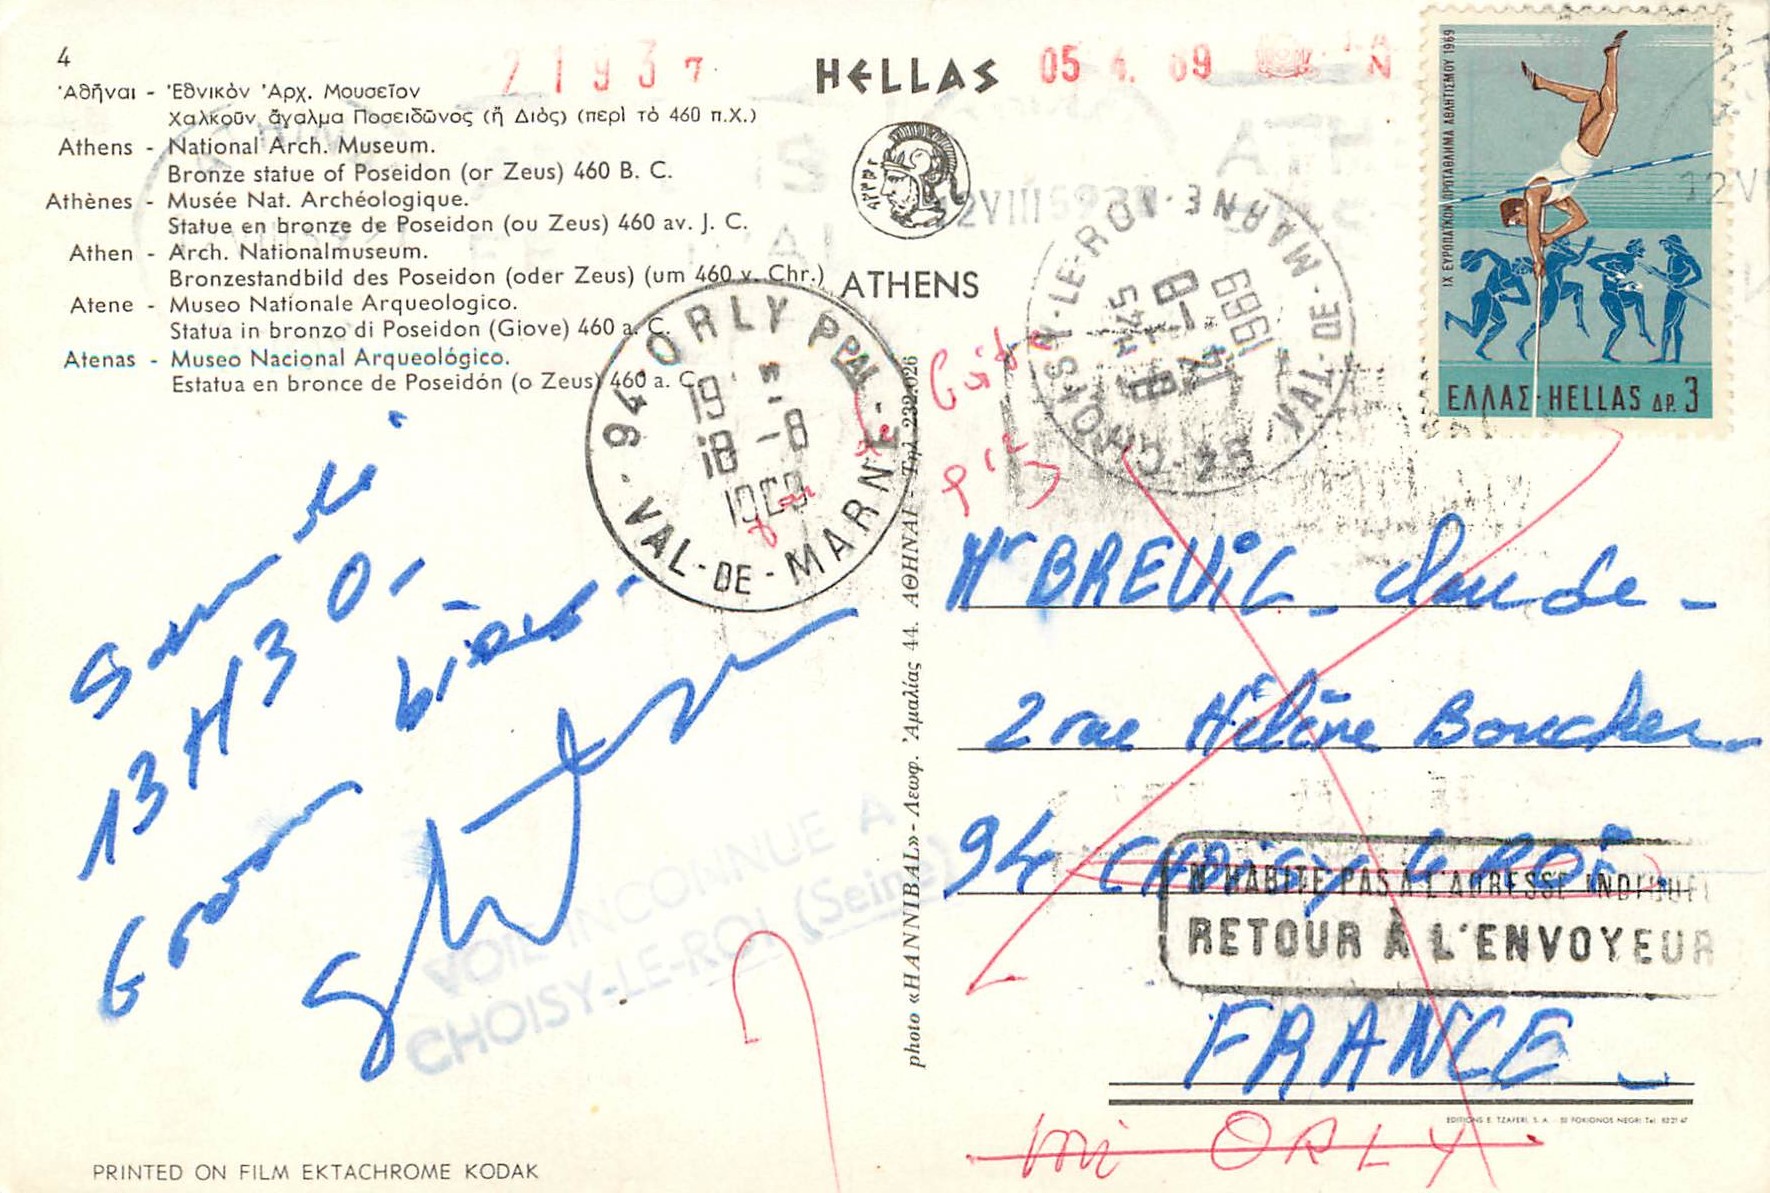 4
21937
HELLAS
05 4. 69
'Αθῆναι - 'Εθνικὸν 'Αρχ. Μουσεῖον
Χαλκοῦν ἄγαλμα Ποσειδῶνος (ἢ Διὸς) (περὶ τὸ 460 π.Χ.)
Athens - National Arch. Museum.
Bronze statue of Poseidon (or Zeus) 460 B. C.
Athènes - Musée Nat. Archéologique.
Statue en bronze de Poseidon (ou Zeus) 460 av. J. C.
Athen - Arch. Nationalmuseum.
Bronzestandbild des Poseidon (oder Zeus) (um 460 v. Chr.)
Atene - Museo Nationale Arqueologico.
Statua in bronzo di Poseidon (Giove) 460 a. C.
Atenas - Museo Nacional Arqueológico.
Estatua en bronce de Poseidón (o Zeus) 460 a. C.
ATHENS
IX ΕΥΡΩΠΑΪΚΟΝ ΠΡΩΤΑΘΛΗΜΑ ΑΘΛΗΤΙΣΜΟΥ 1969
ΕΛΛΑΣ-HELLAS ΔΡ. 3
94 CHOISY-LE-ROI
VAL-DE-MARNE
14-8
1969
94 ORLY PPAL
19
18-8
1969
VAL-DE-MARNE
13H30-
Mr BREVIC - Claude -
2 rue Hélène Boucher
94 CHOISY le ROI.
N'HABITE PAS A L'ADRESSE INDIQUEE
RETOUR À L'ENVOYEUR
FRANCE -
ORLY
VOIE INCONNUE A
CHOISY-LE-ROI (Seine)
photo «HANNIBAL» - Λεωφ. 'Αμαλίας 44. ΑΘΗΝΑΙ - Τηλ. 232.026
EDITIONS E. TZAFERI, S. A. - 50 FOKIONOS NEGRI Tel.
PRINTED ON FILM EKTACHROME KODAK